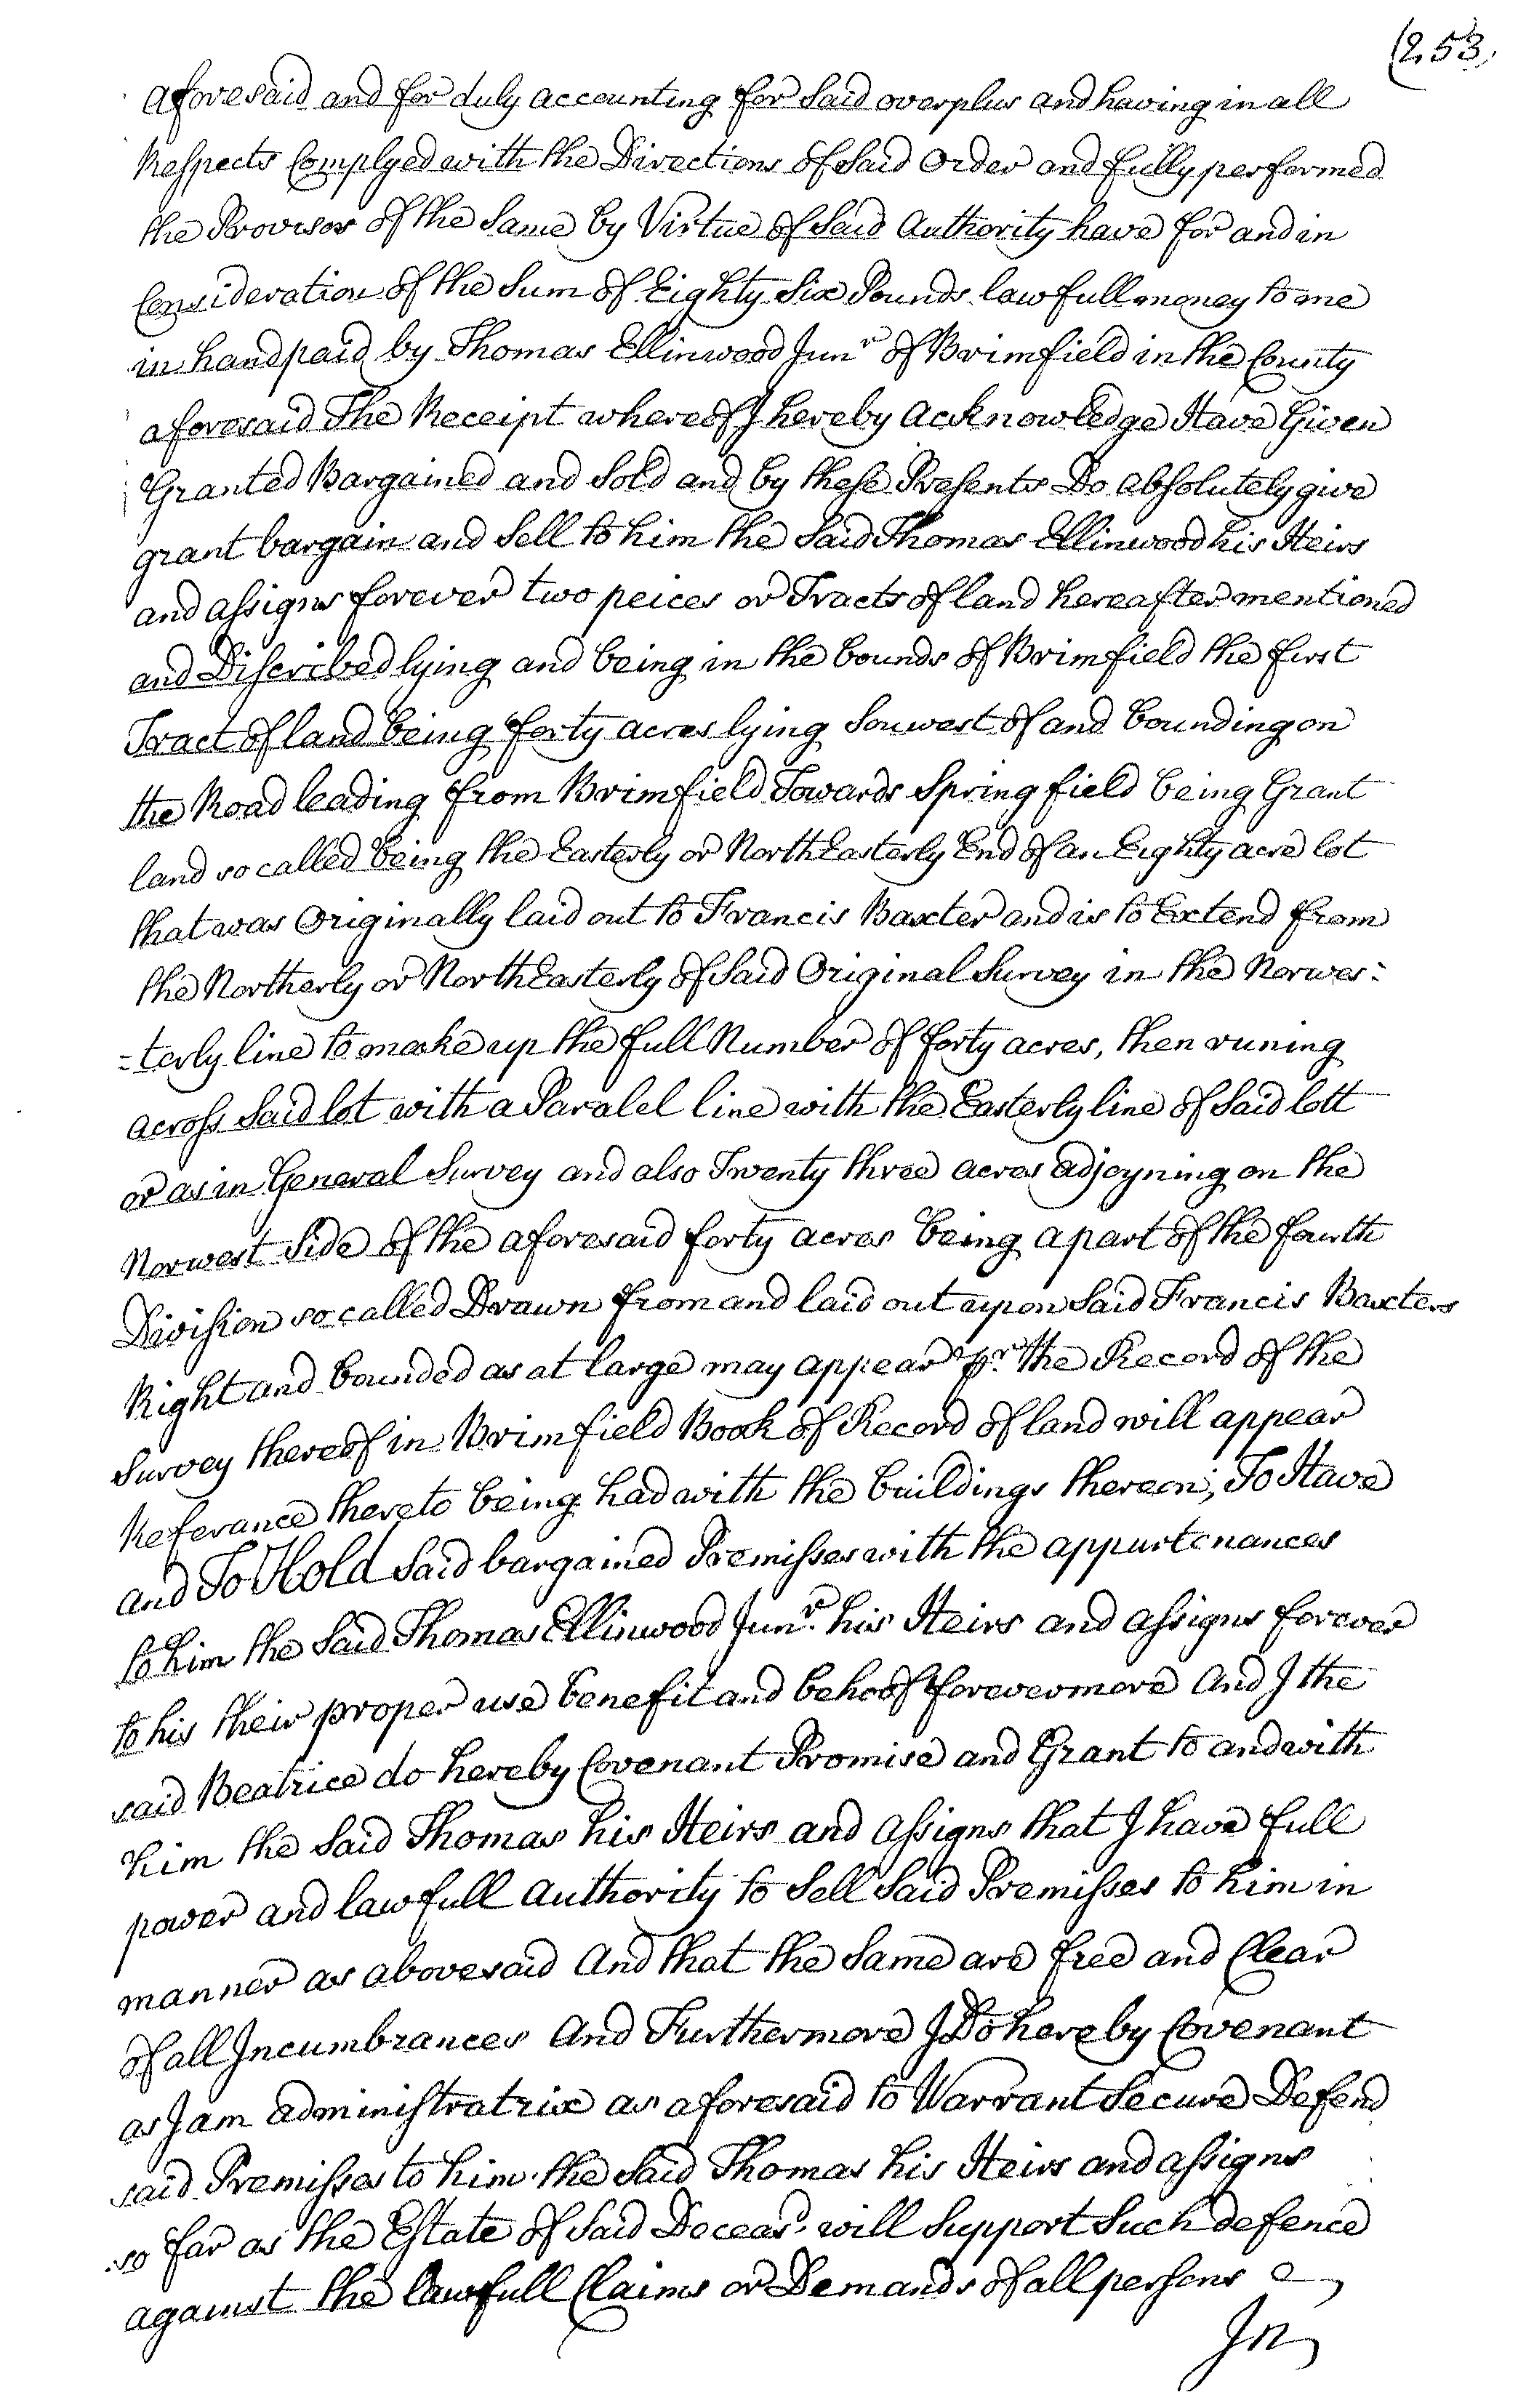 (253,
aforesaid and for duly accounting for Said overplus and having in all
Respects Complyed with the Directions of Said Order and fully performed
the Provisos of the Same by Virtue of Said Authority have for and in
Consideration of the Sum of Eighty Six Pounds lawfull money to me
in hand paid by Thomas Ellinwood Junr of Brimfield in the County
aforesaid The Receipt whereof I hereby Acknowledge Have Given
Granted Bargained and Sold and by these Presents Do absolutely give
grant bargain and Sell to him the Said Thomas Ellinwood his Heirs
and assigns forever two peices or Tracts of land hereafter mentioned
and Discribed lying and being in the bounds of Brimfield the first
Tract of land being forty acres lying Souwest of and bounding on
the Road leading from Brimfield Towards Springfield being Grant
land so called being the Easterly or NorthEasterly End of an Eighty acre lot
that was Originally laid out to Francis Baxter and is to Extend from
the Northerly or NorthEasterly of Said Original Survey in the Norwes:
=terly line to make up the full Number of forty acres, then runing
across Said lot with a Paralel line with the Easterly line of Said lott
or as in General Survey and also Twenty three acres adjoyning on the
Norwest Side of the aforesaid forty acres being a part of the fourth
Division so called Drawn from and laid out upon Said Francis Baxters
Right and bounded as at large may appear pr. the Record of the
Survey thereof in Brimfield Book of Record of land will appear
Referance thereto being had with the buildings thereon; To Have
and To Hold Said bargained Premisses with the appurtenances
to him the Said Thomas Ellinwood Junr. his Heirs and assigns forever
to his their proper use benefit and behoof forevermore And I the
said Beatrice do hereby Covenant Promise and Grant to and with
him the Said Thomas his Heirs and assigns that I have full
power and lawfull authority to Sell Said Premisses to him in
manner as abovesaid And that the Same are free and Clear
of all Incumbrances And Furthermore I Do hereby Covenant
as I am administratrix as aforesaid to Warrant Secure Defend
said Premisses to him the Said Thomas his Heirs and assigns
so far as the Estate of Said Deceasd. will Support Such defence
against the lawfull Claims or Demands of all persons
In